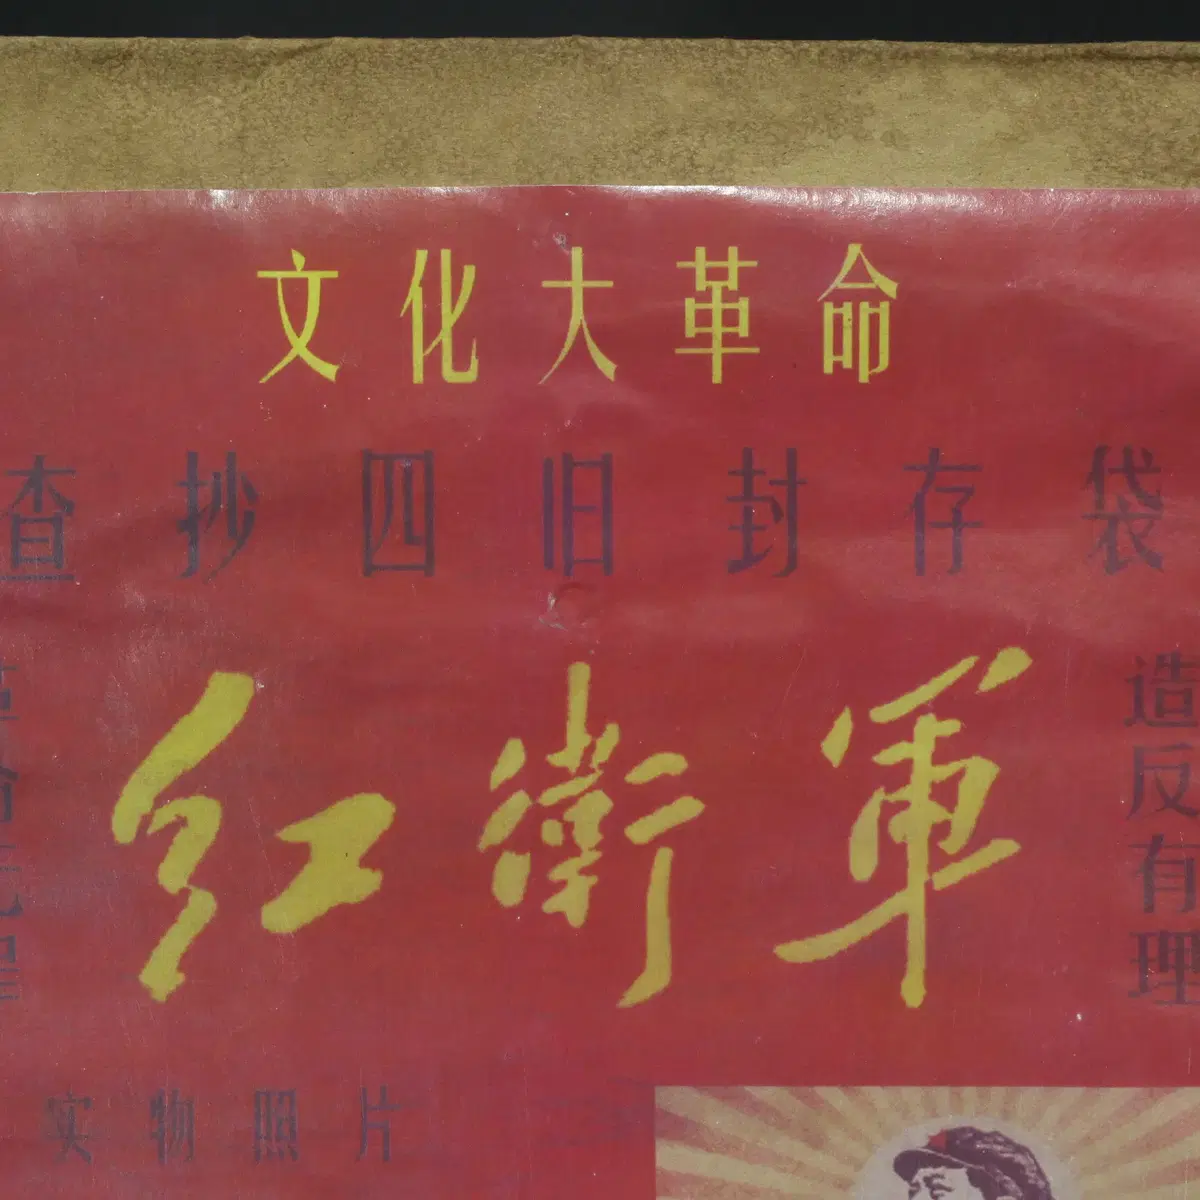 文化大革命
查抄四旧封存袋
红衛軍
造反有理
实物照片